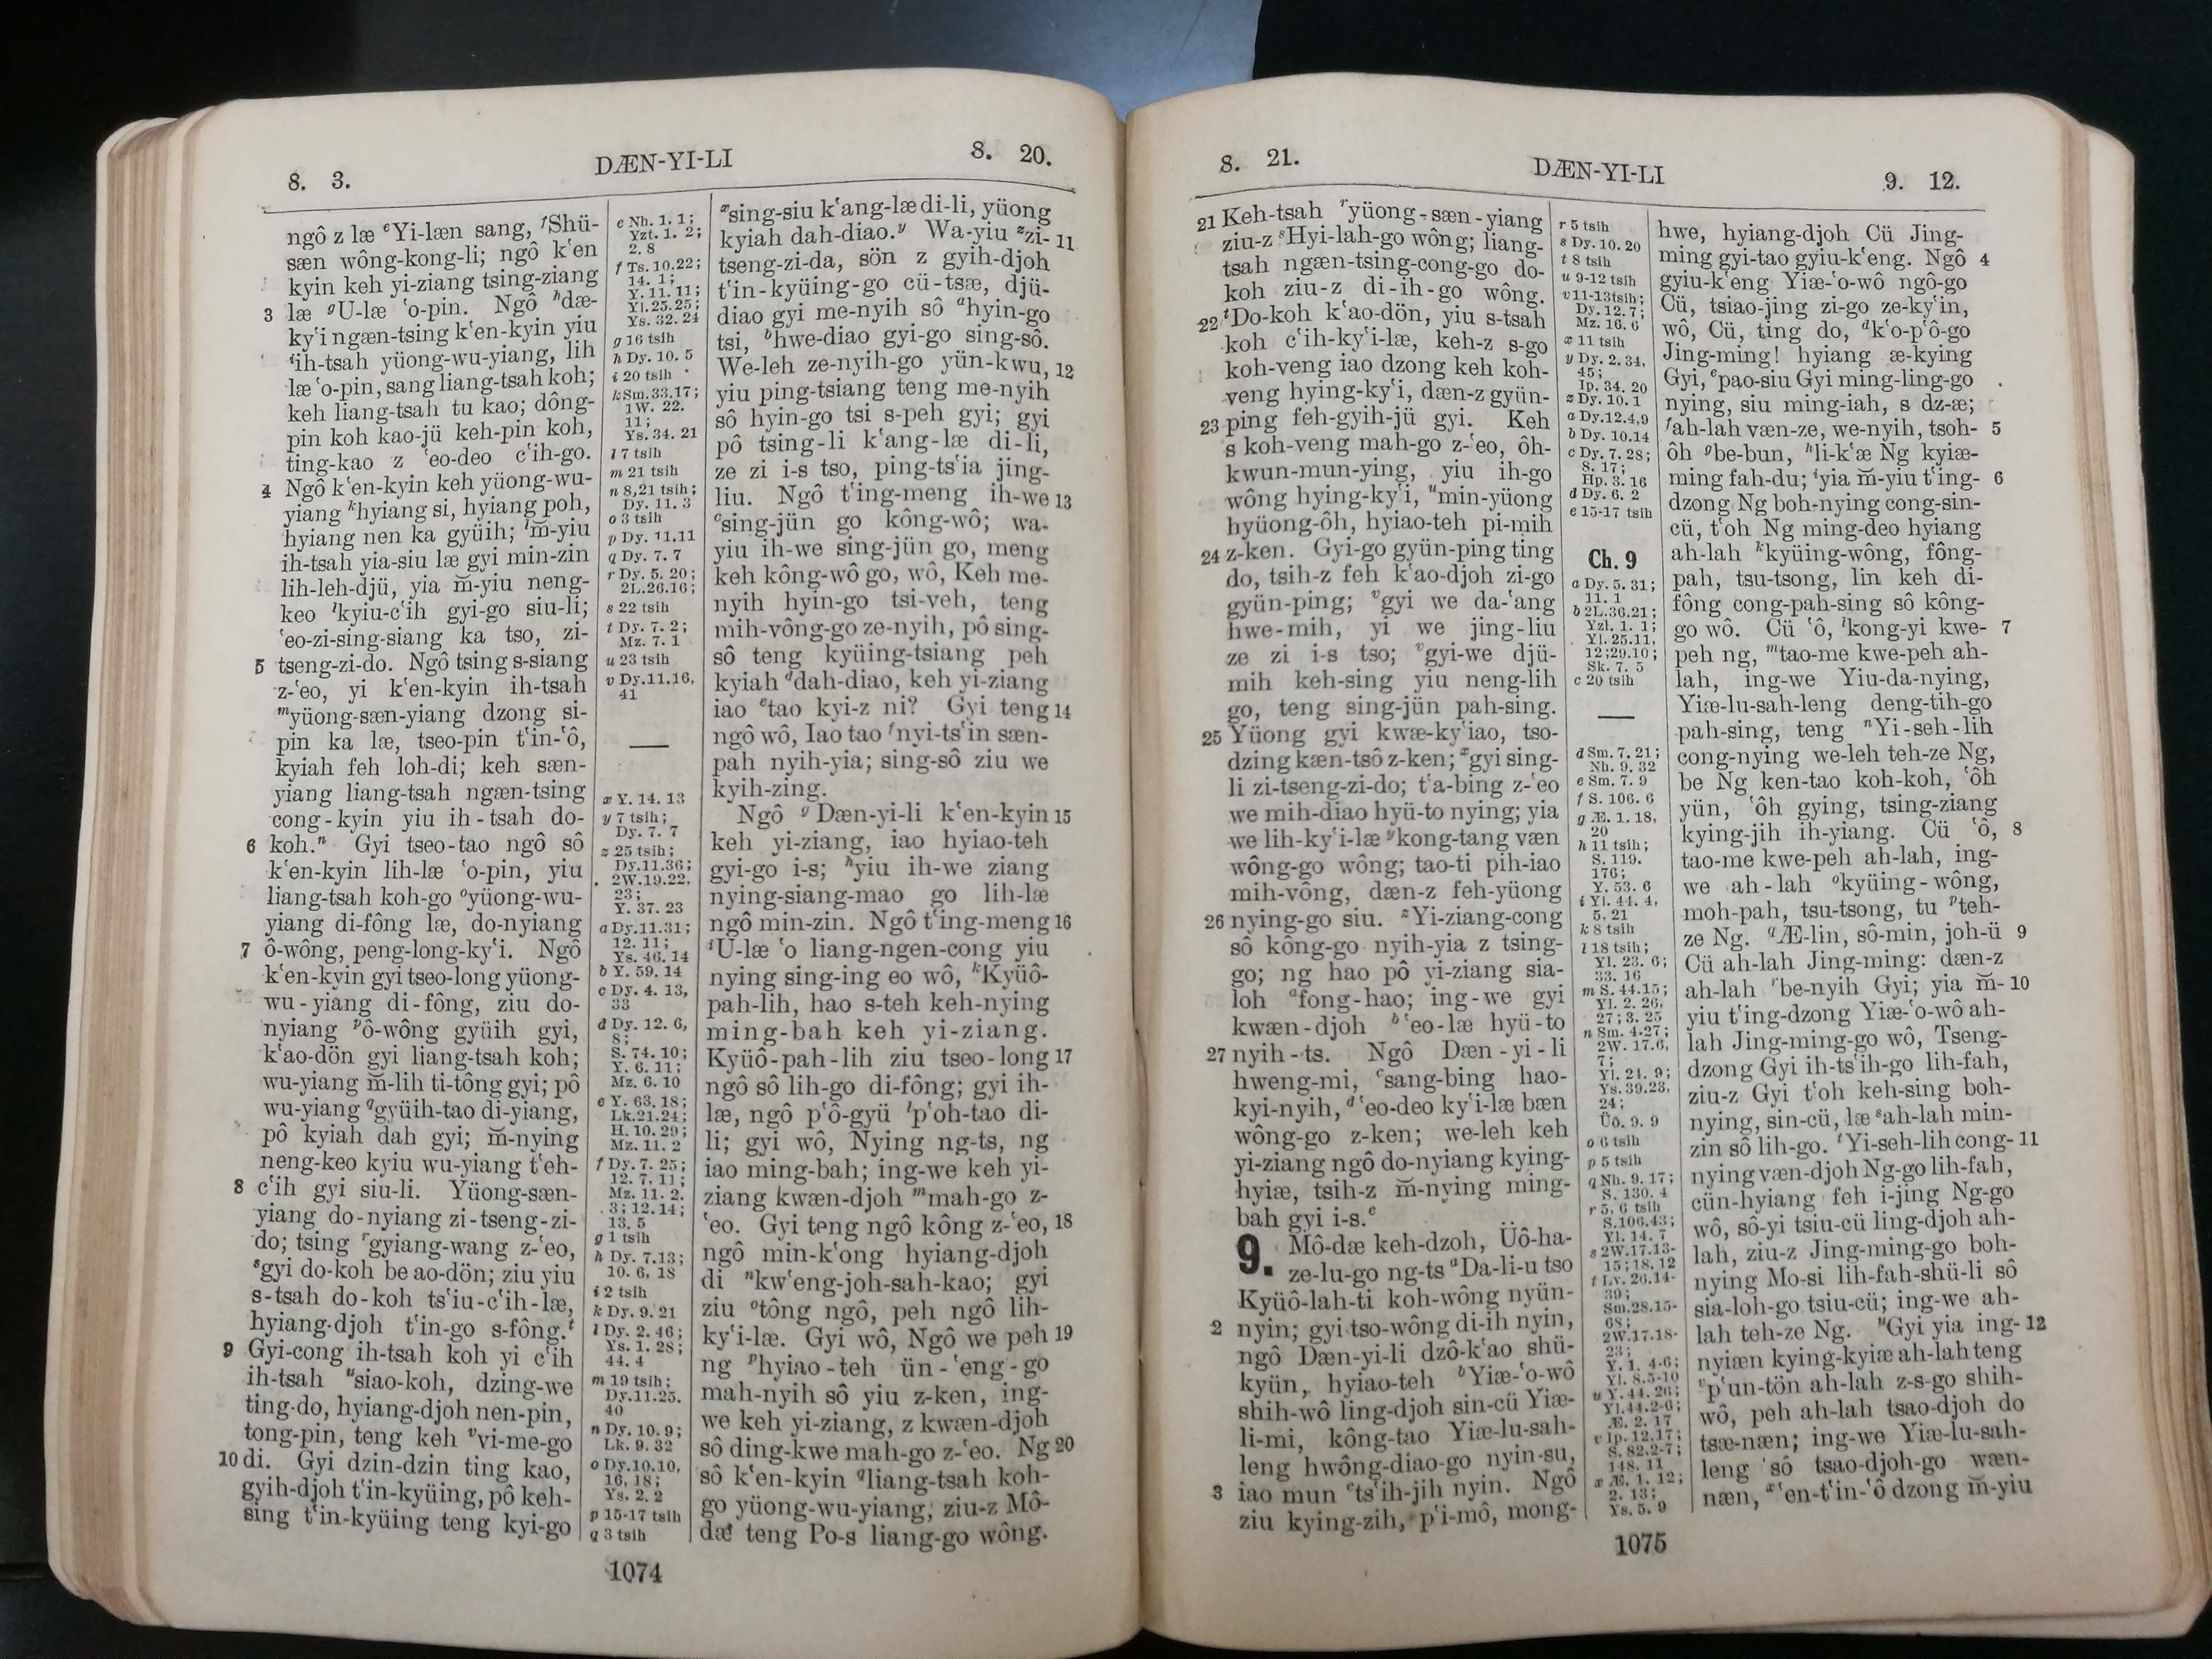 8. 3.
DÆN-YI-LI
8. 20.
ngô z læ ᵉYi-læn sang, ᶠShü-
sæn wông-kong-li; ngô k‘en
kyin keh yi-ziang tsing-ziang
3 læ ᵍU-læ ‘o-pin. Ngô ʰdæ-
ky‘i ngæn-tsing k‘en-kyin yiu
ⁱih-tsah yüong-wu-yiang, lih
læ ‘o-pin, sang liang-tsah koh;
keh liang-tsah tu kao; dông-
pin koh kao-jü keh-pin koh,
ting-kao z ‘eo-deo c‘ih-go.
4 Ngô k‘en-kyin keh yüong-wu-
yiang ᵏhyiang si, hyiang poh,
hyiang nen ka gyüih; ˡm̆-yiu
ih-tsah yia-siu læ gyi min-zin
lih-leh-djü, yia m̆-yiu neng-
keo ˡkyiu-c‘ih gyi-go siu-li;
‘eo-zi-sing-siang ka tso, zi-
5 tseng-zi-do. Ngô tsing s-siang
z-‘eo, yi k‘en-kyin ih-tsah
ᵐyüong-sæn-yiang dzong si-
pin ka læ, tseo-pin t‘in-‘ô,
kyiah feh loh-di; keh sæn-
yiang liang-tsah ngæn-tsing
cong-kyin yiu ih-tsah do-
6 koh.ⁿ Gyi tseo-tao ngô sô
k‘en-kyin lih-læ ‘o-pin, yiu
liang-tsah koh-go ᵒyüong-wu-
yiang di-fông læ, do-nyiang
7 ô-wông, peng-long-ky‘i. Ngô
k‘en-kyin gyi tseo-long yüong-
wu-yiang di-fông, ziu do-
nyiang ᵖô-wông gyüih gyi,
k‘ao-dön gyi liang-tsah koh;
wu-yiang m̆-lih ti-tông gyi; pô
wu-yiang ᑫgyüih-tao di-yiang,
pô kyiah dah gyi; m̆-nying
neng-keo kyiu wu-yiang t‘eh-
8 c‘ih gyi siu-li. Yüong-sæn-
yiang do-nyiang zi-tseng-zi-
do; tsing ʳgyiang-wang z-‘eo,
ˢgyi do-koh be ao-dön; ziu yiu
s-tsah do-koh ts‘iu-c‘ih-læ,
hyiang-djoh t‘in-go s-fông.ᵗ
9 Gyi-cong ih-tsah koh yi c‘ih
ih-tsah ᵘsiao-koh, dzing-we
ting-do, hyiang-djoh nen-pin,
tong-pin, teng keh ᵛvi-me-go
10 di. Gyi dzin-dzin ting kao,
gyih-djoh t‘in-kyüing, pô keh-
sing t‘in-kyüing teng kyi-go
e Nh. 1. 1;
Yzt. 1. 2;
2. 8
f Ts. 10.22;
14. 1;
Y. 11. 11;
Yl. 25.25;
Ys. 32. 24
g 16 tsih
h Dy. 10. 5
i 20 tsih
k Sm. 33.17;
1W. 22.
11;
Ys. 34. 21
l 7 tsih
m 21 tsih
n 8,21 tsih;
Dy. 11. 3
o 3 tsih
p Dy. 11.11
q Dy. 7. 7
r Dy. 5. 20;
2L.26.16;
s 22 tsih
t Dy. 7. 2;
Mz. 7. 1
u 23 tsih
v Dy.11.16,
41
x Y. 14. 13
y 7 tsih;
Dy. 7. 7
z 25 tsih;
Dy.11.36;
2W.19.22,
23;
Y. 37. 23
a Dy.11.31;
12. 11;
Ys. 46. 14
b Y. 59. 14
c Dy. 4. 13,
33
d Dy. 12. 6,
8;
S. 74. 10;
Y. 6. 11;
Mz. 6. 10
e Y. 63. 18;
Lk.21.24;
H. 10. 29;
Mz. 11. 2
f Dy. 7. 25;
12. 7, 11;
Mz. 11. 2.
3; 12.14;
13. 5
g 1 tsih
h Dy. 7.13;
10. 6, 18
i 2 tsih
k Dy. 9. 21
l Dy. 2. 46;
Ys. 1. 28;
44. 4
m 19 tsih;
Dy.11.25.
40
n Dy. 10. 9;
Lk. 9. 32
o Dy.10.10,
16, 18;
Ys. 2. 2
p 15-17 tsih
q 3 tsih
ˣsing-siu k‘ang-læ di-li, yüong
kyiah dah-diao.ʸ Wa-yiu ᶻzi- 11
tseng-zi-da, sön z gyih-djoh
t‘in-kyüing-go cü-tsæ, djü-
diao gyi me-nyih sô ᵃhyin-go
tsi, ᵇhwe-diao gyi-go sing-sô.
We-leh ze-nyih-go yün-kwu, 12
yiu ping-tsiang teng me-nyih
sô hyin-go tsi s-peh gyi; gyi
pô tsing-li k‘ang-læ di-li,
ze zi i-s tso, ping-ts‘ia jing-
liu. Ngô t‘ing-meng ih-we 13
ᶜsing-jün go kông-wô; wa-
yiu ih-we sing-jün go, meng
keh kông-wô go, wô, Keh me-
nyih hyin-go tsi-veh, teng
mih-vông-go ze-nyih, pô sing-
sô teng kyüing-tsiang peh
kyiah ᵈdah-diao, keh yi-ziang
iao ᵉtao kyi-z ni? Gyi teng 14
ngô wô, Iao tao ᶠnyi-ts‘in sæn-
pah nyih-yia; sing-sô ziu we
kyih-zing.
Ngô ᵍDæn-yi-li k‘en-kyin 15
keh yi-ziang, iao hyiao-teh
gyi-go i-s; ʰyiu ih-we ziang
nying-siang-mao go lih-læ
ngô min-zin. Ngô t‘ing-meng 16
ⁱU-læ ‘o liang-ngen-cong yiu
nying sing-ing eo wô, ᵏKyüô-
pah-lih, hao s-teh keh-nying
ming-bah keh yi-ziang.
Kyüô-pah-lih ziu tseo-long 17
ngô sô lih-go di-fông; gyi ih-
læ, ngô p‘ô-gyü ˡp‘oh-tao di-
li; gyi wô, Nying ng-ts, ng
iao ming-bah; ing-we keh yi-
ziang kwæn-djoh ᵐmah-go z-
‘eo. Gyi teng ngô kông z-‘eo, 18
ngô min-k‘ong hyiang-djoh
di ⁿkw‘eng-joh-sah-kao; gyi
ziu ᵒtông ngô, peh ngô lih-
ky‘i-læ. Gyi wô, Ngô we peh 19
ng ᵖhyiao-teh ün-‘eng-go
mah-nyih sô yiu z-ken, ing-
we keh yi-ziang, z kwæn-djoh
sô ding-kwe mah-go z-‘eo. Ng 20
sô k‘en-kyin ᑫliang-tsah koh-
go yüong-wu-yiang; ziu-z Mô-
dæ teng Po-s liang-go wông.
1074
8. 21.
DÆN-YI-LI
9. 12.
21 Keh-tsah ʳyüong-sæn-yiang
ziu-z ˢHyi-lah-go wông; liang-
tsah ngæn-tsing-cong-go do-
koh ziu-z di-ih-go wông.
22 ᵗDo-koh k‘ao-dön, yiu s-tsah
koh c‘ih-ky‘i-læ, keh-z s-go
koh-veng iao dzong keh koh-
veng hying-ky‘i, dæn-z gyün-
23 ping feh-gyih-jü gyi. Keh
s koh-veng mah-go z-‘eo, ôh-
kwun-mun-ying, yiu ih-go
wông hying-ky‘i, ᵘmin-yüong
hyüong-ôh, hyiao-teh pi-mih
24 z-ken. Gyi-go gyün-ping ting
do, tsih-z feh k‘ao-djoh zi-go
gyün-ping; ᵛgyi we da-‘ang
hwe-mih, yi we jing-liu
ze zi i-s tso; ᵛgyi-we djü-
mih keh-sing yiu neng-lih
go, teng sing-jün pah-sing.
25 Yüong gyi kwæ-ky‘iao, tso-
dzing kæn-tsô z-ken; ˣgyi sing-
li zi-tseng-zi-do; t‘a-bing z-‘eo
we mih-diao hyü-to nying; yia
we lih-ky‘i-læ ʸkong-tang væn
wông-go wông; tao-ti pih-iao
mih-vông, dæn-z feh-yüong
26 nying-go siu. ᶻYi-ziang-cong
sô kông-go nyih-yia z tsing-
go; ng hao pô yi-ziang sia-
loh ᵃfong-hao; ing-we gyi
kwæn-djoh ᵇ‘eo-læ hyü-to
27 nyih-ts. Ngô Dæn-yi-li
hweng-mi, ᶜsang-bing hao-
kyi-nyih, ᵈ‘eo-deo ky‘i-læ bæn
wông-go z-ken; we-leh keh
yi-ziang ngô do-nyiang kying-
hyiæ, tsih-z m̆-nying ming-
bah gyi i-s.ᵉ
9. Mô-dæ keh-dzoh, Üô-ha-
ze-lu-go ng-ts ᵃDa-li-u tso
Kyüô-lah-ti koh-wông nyün-
2 nyin; gyi tso-wông di-ih nyin,
ngô Dæn-yi-li dzô-k‘ao shü-
kyün, hyiao-teh ᵇYiæ-‘o-wô
shih-wô ling-djoh sin-cü Yiæ-
li-mi, kông-tao Yiæ-lu-sah-
leng hwông-diao-go nyin-su,
3 iao mun ᶜts‘ih-jih nyin. Ngô
ziu kying-zih, p‘i-mô, mong-
r 5 tsih
s Dy. 10. 20
t 8 tsih
u 9-12 tsih
v 11-13tsih;
Dy. 12. 7;
Mz. 16. 6
x 11 tsih
y Dy. 2. 34,
45;
Ip. 34. 20
z Dy. 10. 1
a Dy.12.4,9
b Dy. 10.14
c Dy. 7. 28;
S. 17;
Hp. 3. 16
d Dy. 6. 2
e 15-17 tsih
Ch. 9
a Dy. 5. 31;
11. 1
b 2L.36.21;
Yzl. 1. 1;
Yl. 25.11,
12;29.10;
Sk. 7. 5
c 20 tsih
d Sm. 7. 21;
Nh. 9. 32
e Sm. 7. 9
f S. 106. 6
g Æ. 1. 18,
20
h 11 tsih;
S. 119.
176;
Y. 53. 6
i Yl. 44. 4,
5, 21
k 8 tsih
l 18 tsih;
Yl. 23. 6;
33. 16
m S. 44.15;
Yl. 2. 26,
27; 3. 25
n Sm. 4-27;
2W. 17.6,
7;
Yl. 24. 9;
Ys.39.23,
24;
Üô. 9. 9
o 6 tsih
p 5 tsih
q Nh. 9. 17;
S. 130. 4
r 5, 6 tsih
S.106.43;
Yl. 14. 7
s 2W.17.13-
15;18. 12
t Lv. 26.14-
39;
Sm.28.15-
68;
2W.17.18-
23;
Y. 1. 4-6;
Yl. 8.5-10
u Y. 44. 26;
Yl.44.2-6;
Æ. 2. 17
v Ip. 12.17;
S. 82.2-7;
148. 11
x Æ. 1. 12;
2. 13;
Ys. 5. 9
hwe, hyiang-djoh Cü Jing-
ming gyi-tao gyiu-k‘eng. Ngô 4
gyiu-k‘eng Yiæ-‘o-wô ngô-go
Cü, tsiao-jing zi-go ze-ky‘in,
wô, Cü, ting do, ᵈk‘o-p‘ô-go
Jing-ming! hyiang æ-kying
Gyi, ᵉpao-siu Gyi ming-ling-go
nying, siu ming-iah, s dz-æ;
ᶠah-lah væn-ze, we-nyih, tsoh- 5
ôh ᵍbe-bun, ʰli-k‘æ Ng kyiæ-
ming fah-du; ⁱyia m̆-yiu t‘ing- 6
dzong Ng boh-nying cong-sin-
cü, t‘oh Ng ming-deo hyiang
ah-lah ᵏkyüing-wông, fông-
pah, tsu-tsong, lin keh di-
fông cong-pah-sing sô kông-
go wô. Cü ‘ô, ˡkong-yi kwe- 7
peh ng, ᵐtao-me kwe-peh ah-
lah, ing-we Yiu-da-nying,
Yiæ-lu-sah-leng deng-tih-go
pah-sing, teng ⁿYi-seh-lih
cong-nying we-leh teh-ze Ng,
be Ng ken-tao koh-koh, ‘ôh
yün, ‘ôh gying, tsing-ziang
kying-jih ih-yiang. Cü ‘ô, 8
tao-me kwe-peh ah-lah, ing-
we ah-lah ᵒkyüing-wông,
moh-pah, tsu-tsong, tu ᵖteh-
ze Ng. ᑫÆ-lin, sô-min, joh-ü 9
Cü ah-lah Jing-ming: dæn-z
ah-lah ʳbe-nyih Gyi; yia m̆- 10
yiu t‘ing-dzong Yiæ-‘o-wô ah-
lah Jing-ming-go wô, Tseng-
dzong Gyi ih-ts‘ih-go lih-fah,
ziu-z Gyi t‘oh keh-sing boh-
nying, sin-cü, læ ˢah-lah min-
zin sô lih-go. ᵗYi-seh-lih cong- 11
nying væn-djoh Ng-go lih-fah,
cün-hyiang feh i-jing Ng-go
wô, sô-yi tsiu-cü ling-djoh ah-
lah, ziu-z Jing-ming-go boh-
nying Mo-si lih-fah-shü-li sô
sia-loh-go tsiu-cü; ing-we ah-
lah teh-ze Ng. ᵘGyi yia ing- 12
nyiæn kying-kyiæ ah-lah teng
ᵛp‘un-tön ah-lah z-s-go shih-
wô, peh ah-lah tsao-djoh do
tsæ-næn; ing-we Yiæ-lu-sah-
leng sô tsao-djoh-go wæn-
næn, ˣ‘en-t‘in-‘ô dzong m̆-yiu
1075